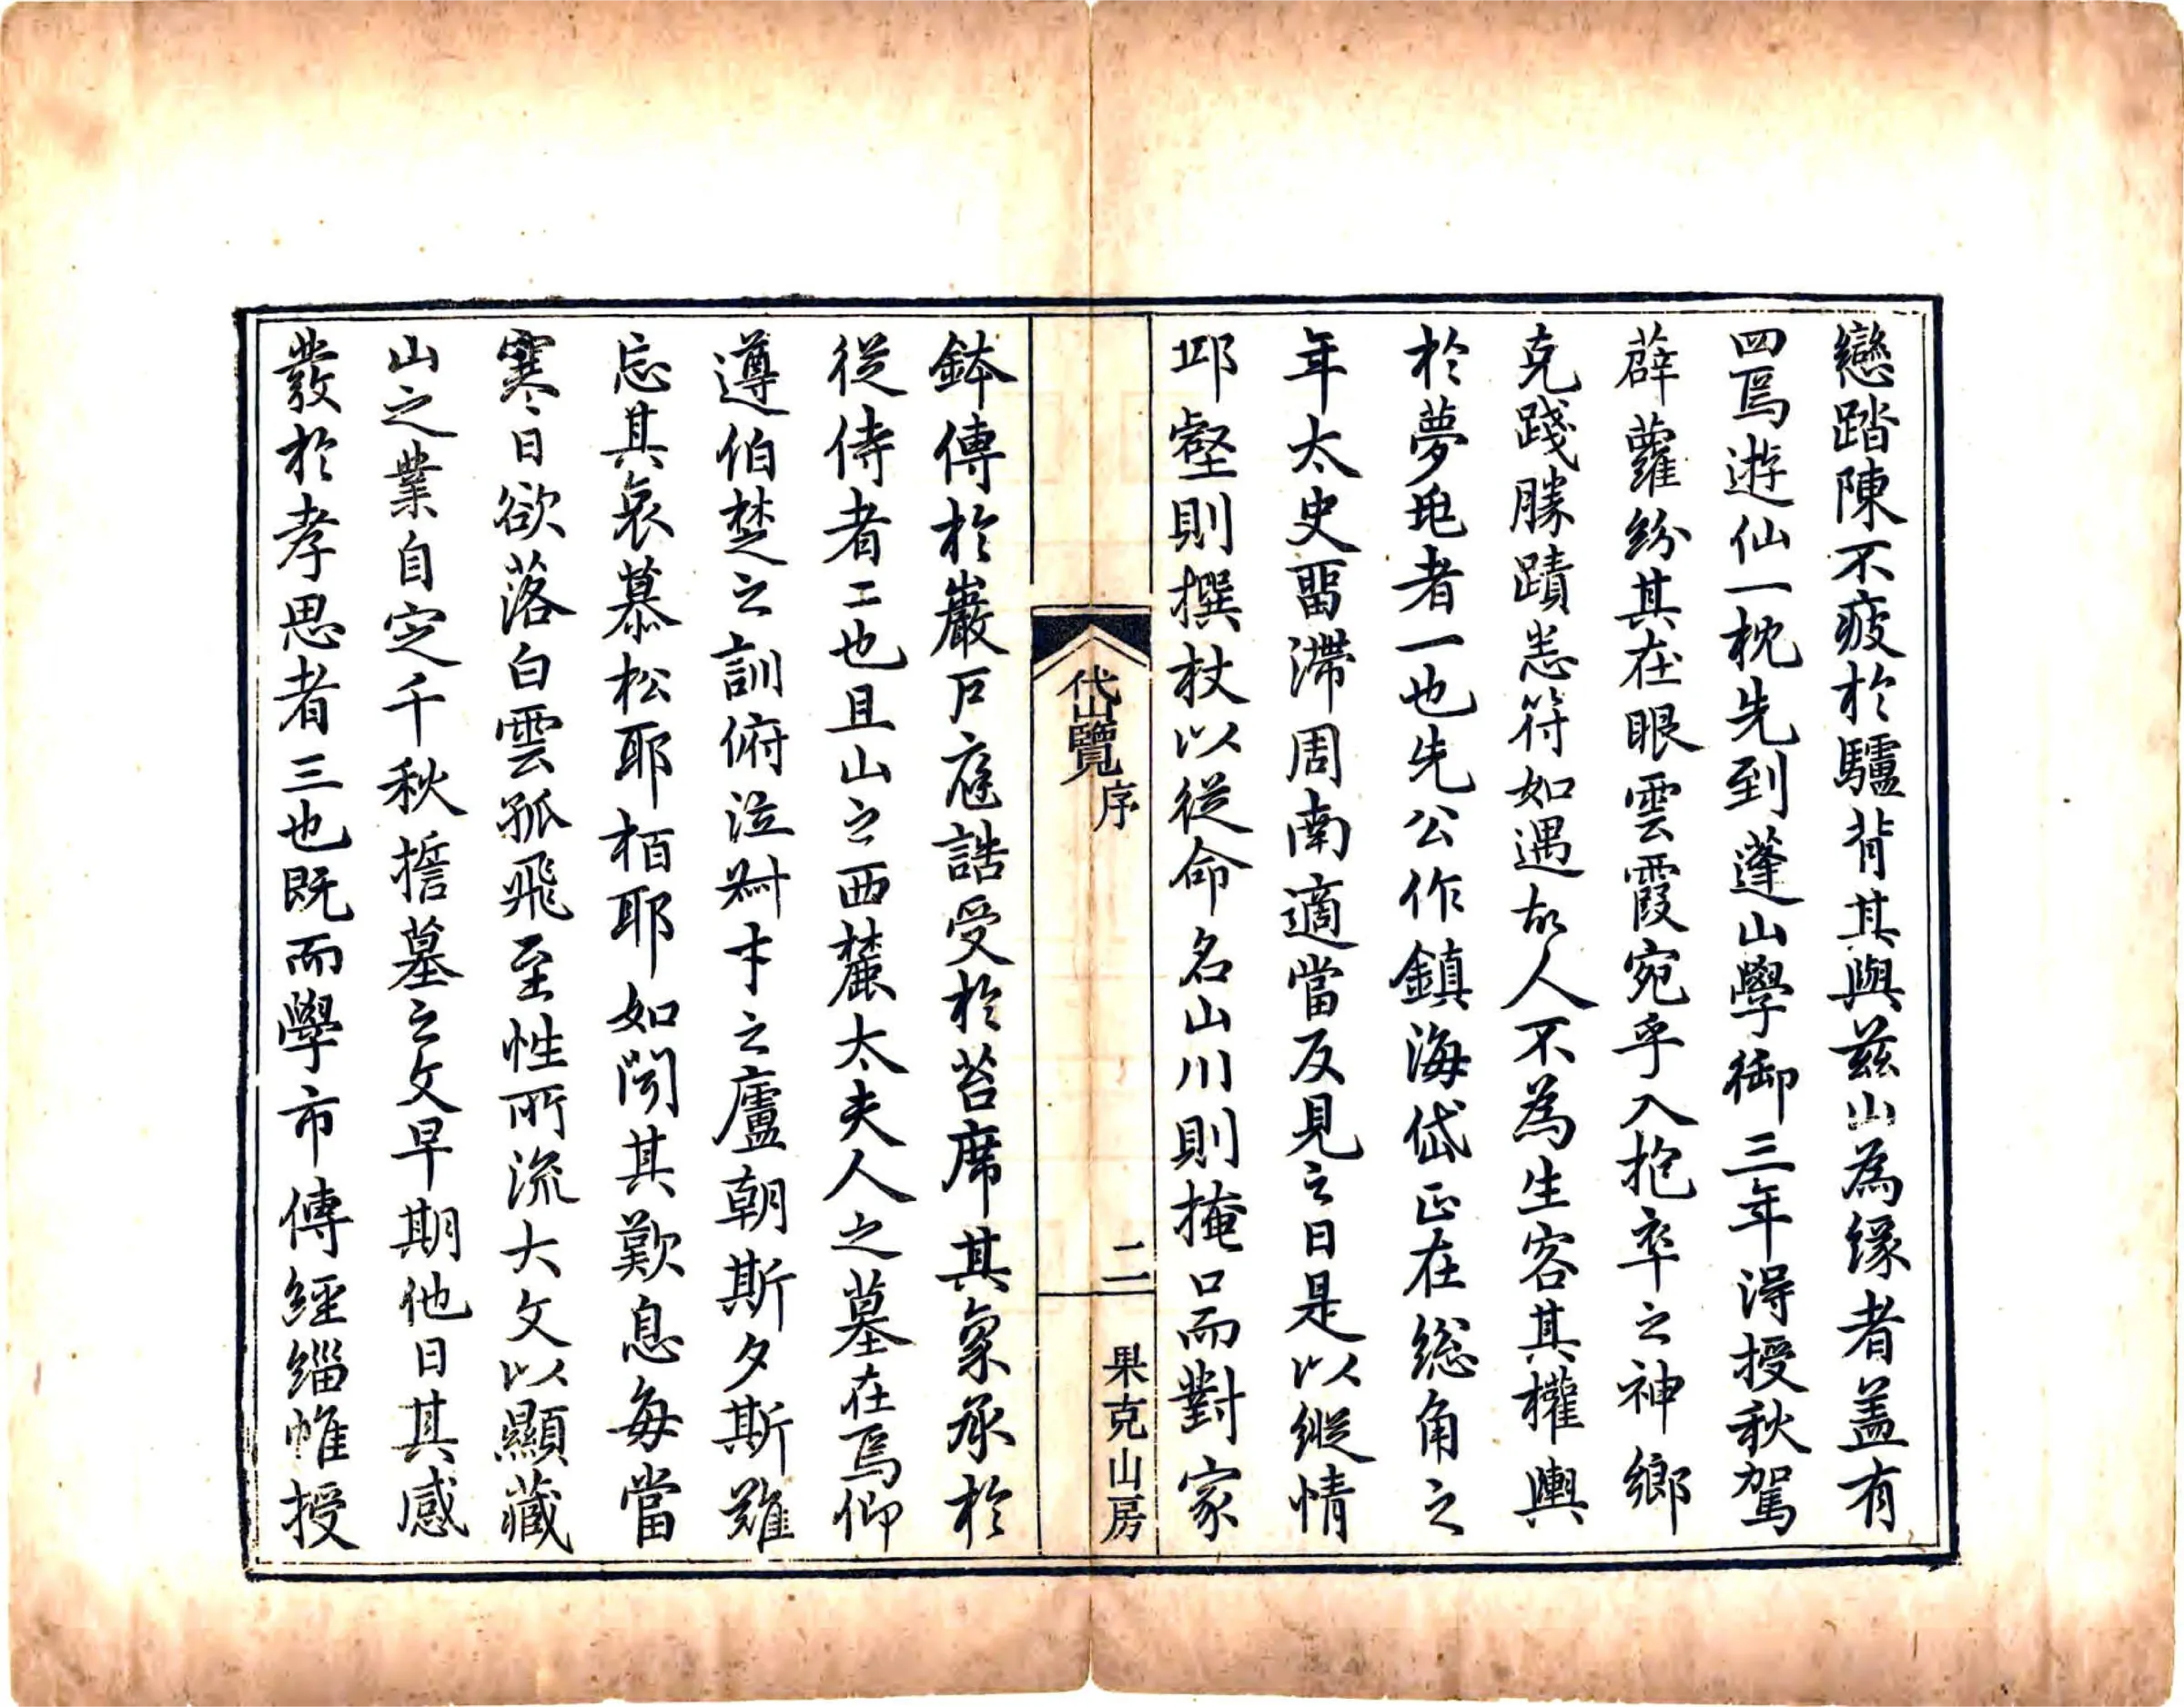 戀踏陳不疲於驢背其與茲山為緣者盖有
四焉遊仙一枕先到蓬山學御三年得授秋駕
薜蘿紛其在眼雲霞宛乎入抱率之神鄉
克踐勝蹟恙符如遇故人不為生客其權輿
於夢兆者一也先公作鎮海岱正在總角之
年太史畱滯周南適當反見之日是以縱情
邱壑則撰杖以從命名山川則掩口而對家
岱覽
序
二
果克山房
鉢傳於巖戶庭誥受於苔席其気承於
從侍者二也且山之西麓太夫人之墓在焉仰
遵伯楚之訓俯泣之廬朝斯夕斯難
忘其哀慕松耶栢耶如聞其歎息每當
寒日欲落白雲孤飛至性所流大文以顯藏
山之業自定千秋擔墓之文早期他日其感
發於孝思者三也既而學市傳經緇帷授